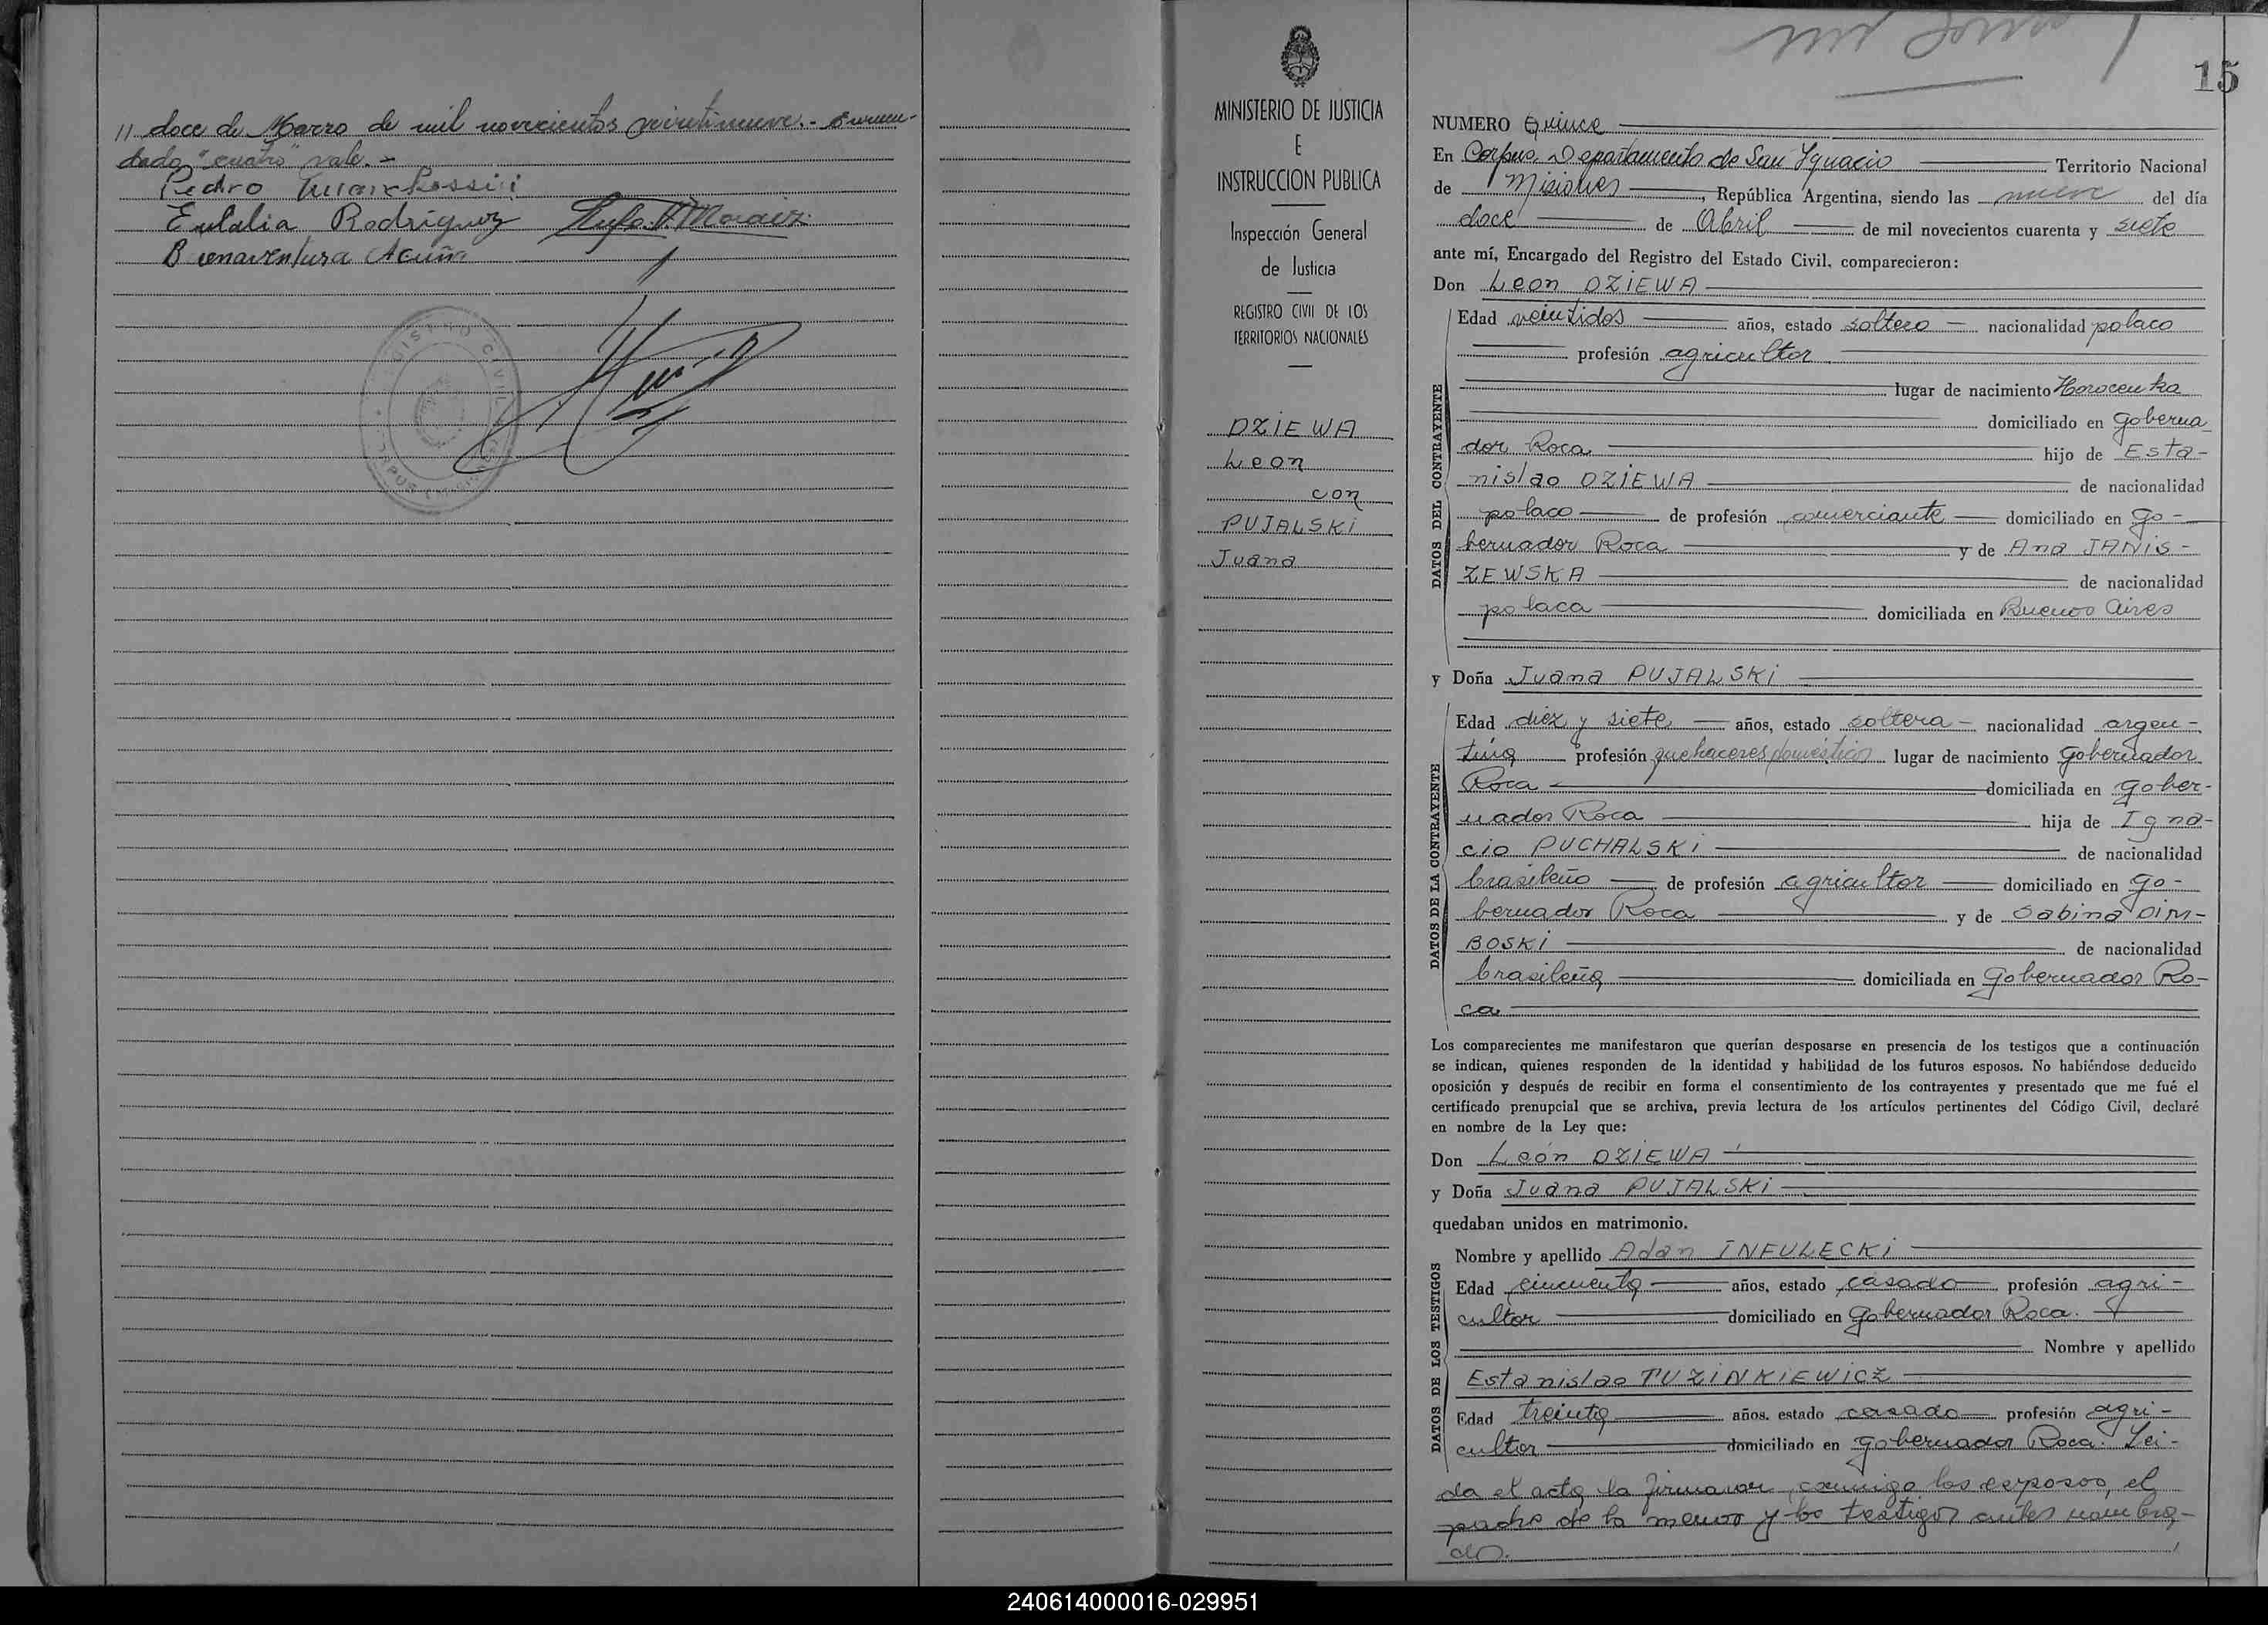 11 doce de Marzo de mil novecientos veintinueve.- Enmen-
dado "cuatro" vale.-
Pedro
Eulalia Rodriguez
Buenaventura Acuña
MINISTERIO DE JUSTICIA
E
INSTRUCCION PUBLICA
Inspección General
de Justicia
REGISTRO CIVIL DE LOS
TERRITORIOS NACIONALES
DZIEWA
Leon
con
PUJALSKI
Juana
15
NUMERO Quince
En Corpus Departamento de San Ignacio Territorio Nacional
de Misiones, República Argentina, siendo las nueve del día
doce de Abril de mil novecientos cuarenta y siete
ante mí, Encargado del Registro del Estado Civil, comparecieron:
Don Leon DZIEWA
DATOS DEL CONTRAYENTE
Edad veintidos años, estado soltero nacionalidad polaco
profesión agricultor
lugar de nacimiento Horocenka
domiciliado en Goberna
dor Roca hijo de Esta-
nislao DZIEWA de nacionalidad
polaco de profesión comerciante domiciliado en Go-
bernador Roca y de Ana JANIS-
ZEWSKA de nacionalidad
polaca domiciliada en Buenos Aires
y Doña Juana PUJALSKI
DATOS DE LA CONTRAYENTE
Edad diez y siete años, estado soltera nacionalidad argen-
tina profesión quehaceres domésticos lugar de nacimiento Gobernador
Roca domiciliada en Gober-
nador Roca hija de Igna-
cio PUCHALSKI de nacionalidad
brasileño de profesión agricultor domiciliado en Go-
bernador Roca y de Sabina DIM-
BOSKI de nacionalidad
brasileña domiciliada en Gobernador Ro-
ca
Los comparecientes me manifestaron que querían desposarse en presencia de los testigos que a continuación
se indican, quienes responden de la identidad y habilidad de los futuros esposos. No habiéndose deducido
oposición y después de recibir en forma el consentimiento de los contrayentes y presentado que me fué el
certificado prenupcial que se archiva, previa lectura de los artículos pertinentes del Código Civil, declaré
en nombre de la Ley que:
Don León DZIEWA
y Doña Juana PUJALSKI
quedaban unidos en matrimonio.
DATOS DE LOS TESTIGOS
Nombre y apellido Adan INFULECKI
Edad cincuenta años, estado casado profesión agri-
cultor domiciliado en Gobernador Roca.
Nombre y apellido
Estanislao TUZINKIEWICZ
Edad treinta años, estado casado profesión agri-
cultor domiciliado en Gobernador Roca. Lei-
da el acta la firmaron conmigo los esposos, el
padre de la menor y los testigos antes nombra-
do.
240614000016-029951